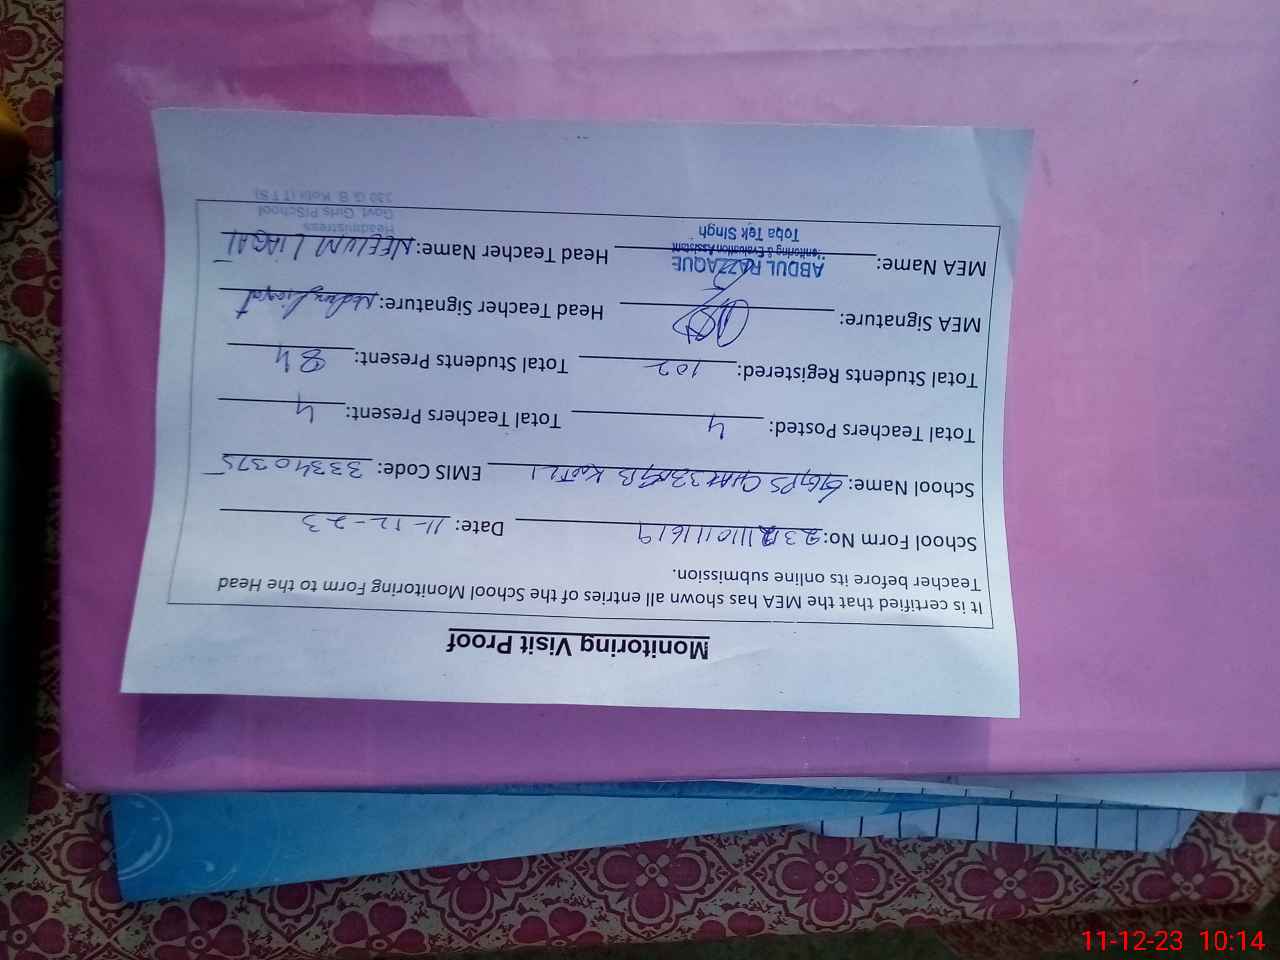 Monitoring Visit Proof
It is certified that the MEA has shown all entries of the School Monitoring Form to the Head
Teacher before its online submission.
School Form No: Date: 11-12-23
School Name: GGPS CHAK 330 GB KOTLI EMIS Code: 33340375
Total Teachers Posted: 4 Total Teachers Present: 4
Total Students Registered: 102 Total Students Present: 84
MEA Signature: Head Teacher Signature: Neelum liaqat
MEA Name: ABDUL RAZZAQUE Head Teacher Name: NEELUM LIAQAT
Monitoring & Evaluation Assistant
Toba Tek Singh
Headmistress
Govt. Girls P/School
330 G.B. Kotli (T.T.S)
11-12-23 10:14